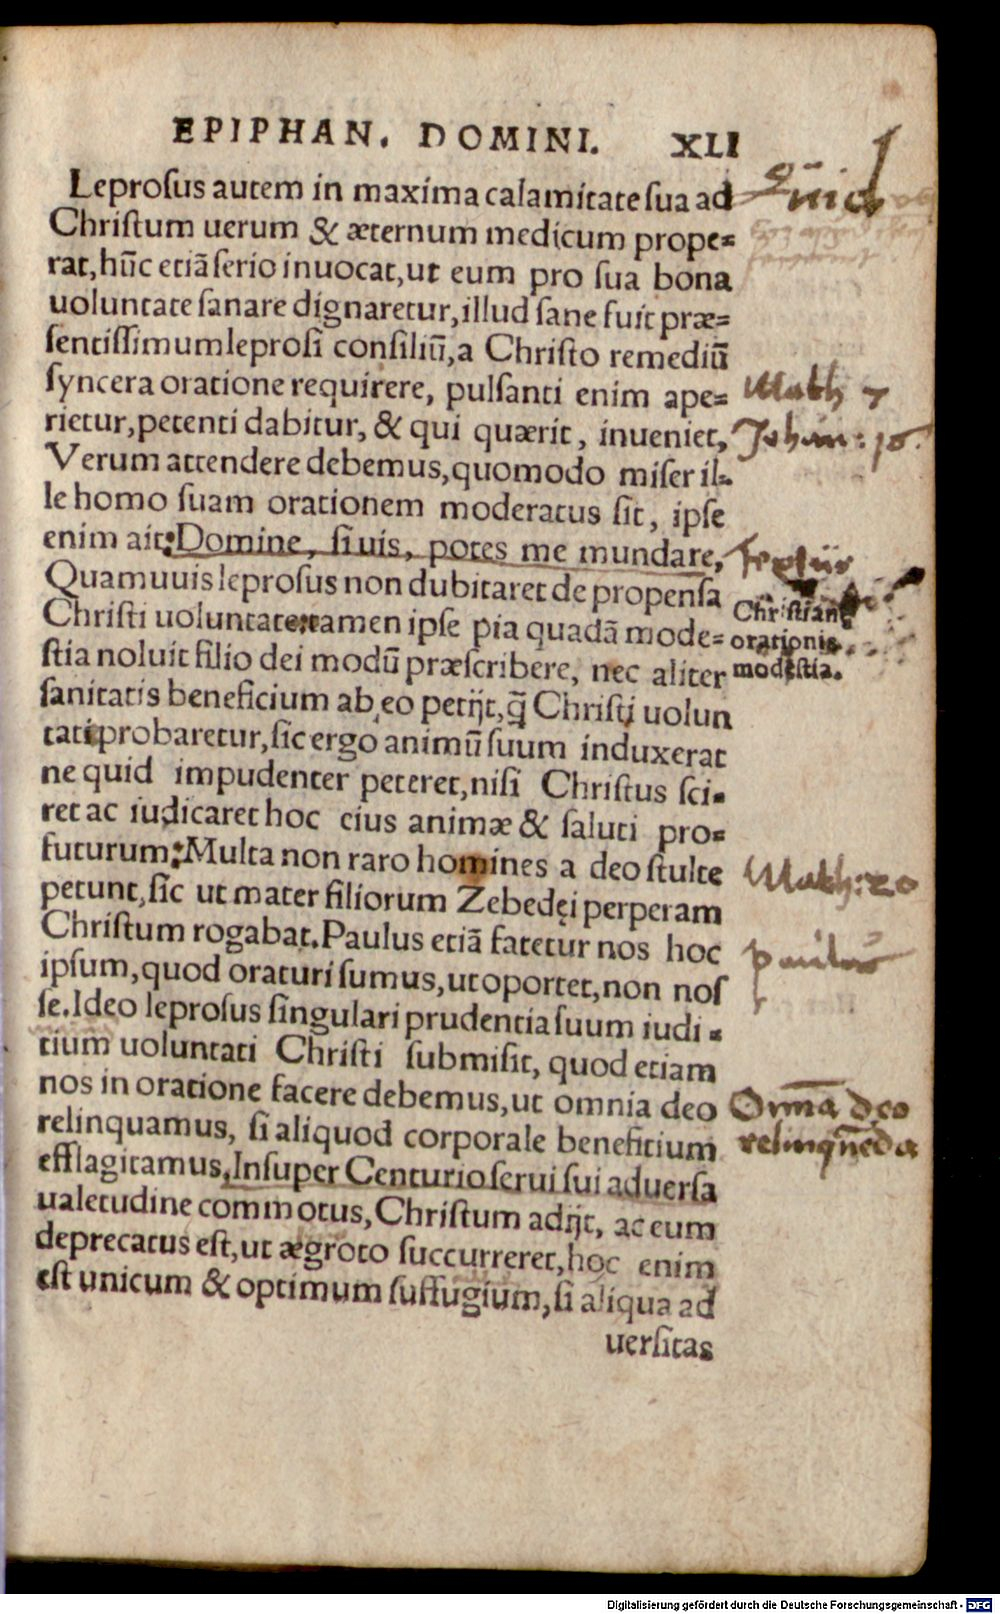 EPIPHAN. DOMINI. XLI
Leprosus autem in maxima calamitate sua ad
Christum uerum & æternum medicum prope=
rat, hūc etiā serio inuocat, ut eum pro sua bona
uoluntate sanare dignaretur, illud sane fuit præ=
sentissimum leprosi consiliū, a Christo remediū
syncera oratione requirere, pulsanti enim ape=
Math 7
rietur, petenti dabitur, & qui quærit, inueniet,
Johan: 16.
Verum attendere debemus, quomodo miser il=
le homo suam orationem moderatus sit, ipse
enim ait: Domine, si uis, potes me mundare,
Textus
Quamuuis leprosus non dubitaret de propensa
Christi uoluntate: tamen ipse pia quadā mode=
stia noluit filio dei modū præscribere, nec aliter
Christianę
orationis
modestia.
sanitatis beneficium ab eo petijt, q̃ Christi uolun
tati probaretur, sic ergo animū suum induxerat
ne quid impudenter peteret, nisi Christus sci=
ret ac iudicaret hoc eius animæ & saluti pro=
futurum: Multa non raro homines a deo stulte
petunt, sic ut mater filiorum Zebedęi perperam
Math: 20
Christum rogabat. Paulus etiā fatetur nos hoc
paulus
ipsum, quod oraturi sumus, ut oportet, non nos
se. Ideo leprosus singulari prudentia suum iudi=
tium uoluntati Christi submisit, quod etiam
nos in oratione facere debemus, ut omnia deo
Om̄a deo
relinquamus, si aliquod corporale benefitium
relinquēda
efflagitamus, Insuper Centurio serui sui aduersa
ualetudine commotus, Christum adijt, ac eum
deprecatus est, ut ægroto succurreret, hoc enim
est unicum & optimum suffugium, si aliqua ad
uersitas
Digitalisierung gefördert durch die Deutsche Forschungsgemeinschaft - DFG